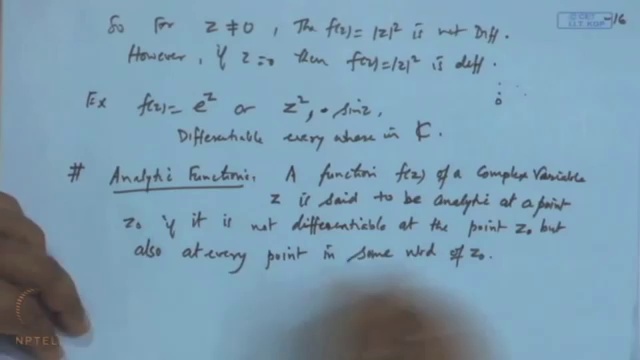 So For z ≠ 0, The f(z) = |z|² is not Diff.
However, if z=0 then f(z)=|z|² is diff.
Ex f(z) = e^z or z², sin z,
Differentiable every where in ℂ.
# Analytic Function: A function f(z) of a Complex Variable
z is said to be analytic at a point
z₀ if it is not differentiable at the point z₀ but
also at every point in some nbd of z₀.
NPTEL